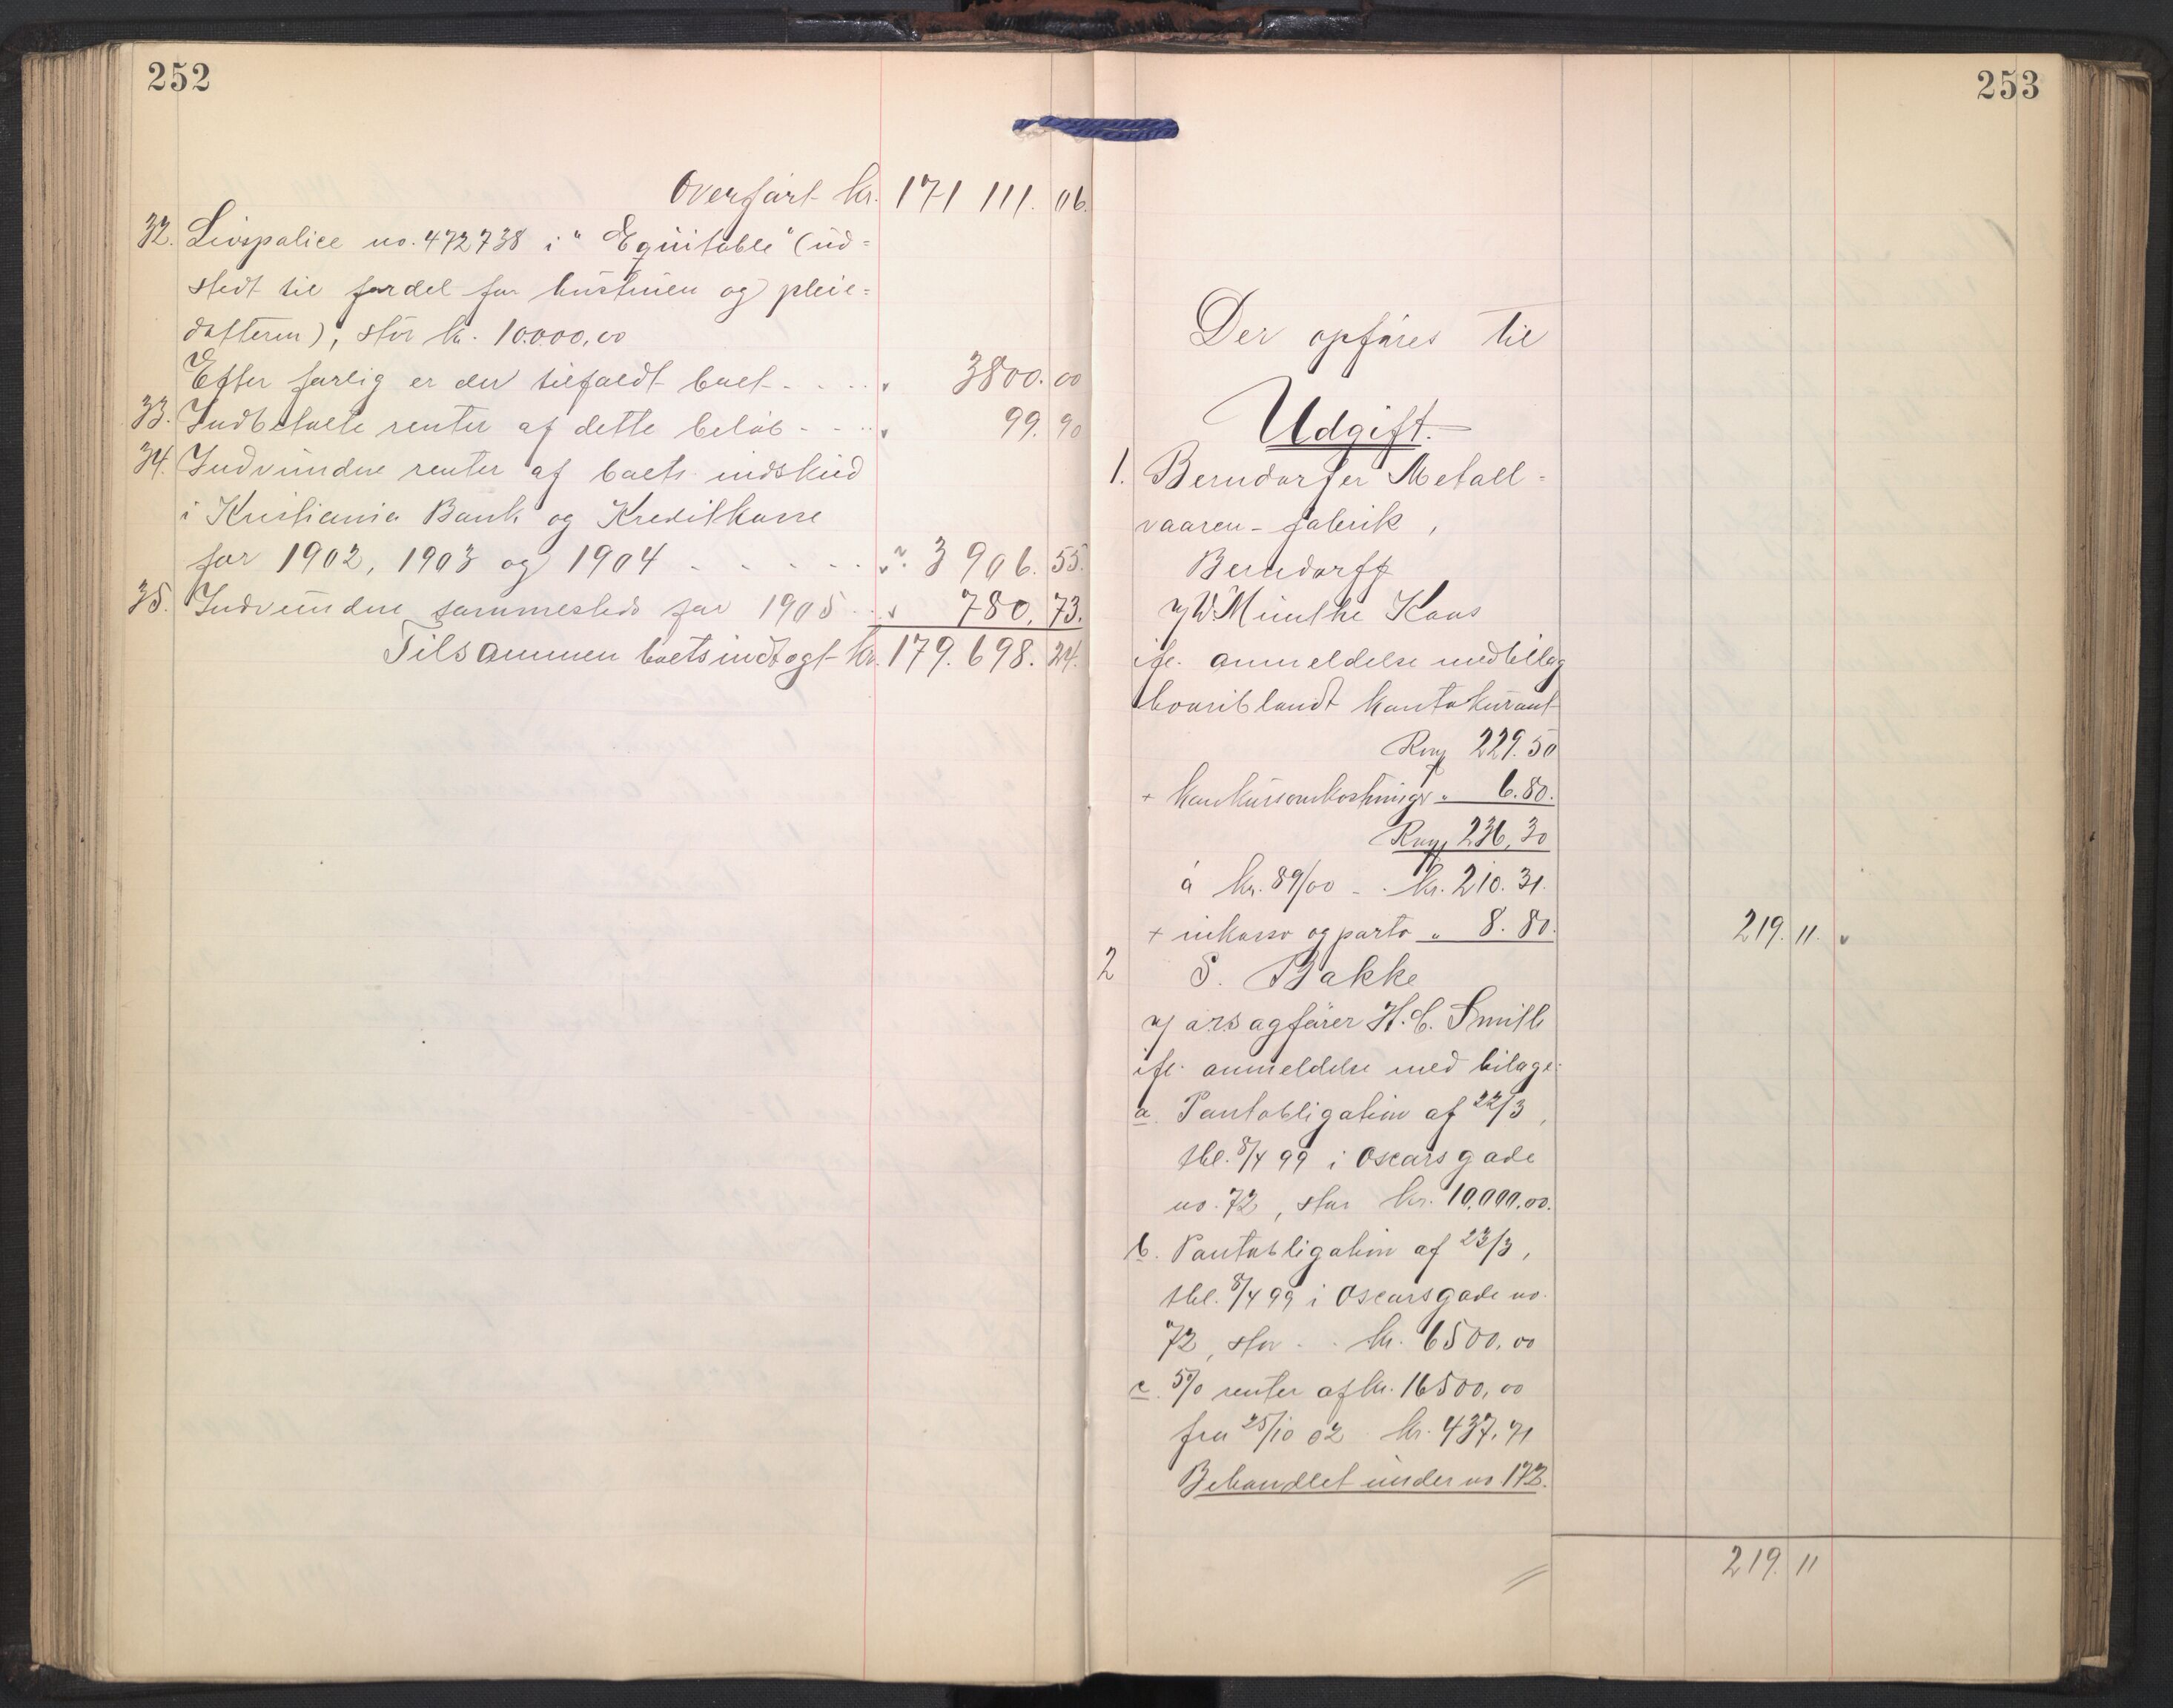 252
Overført kr. 171 111. 06.
32. Livspolice no. 472738 i "Equitable" (ud=
stedt til fordel for hustruen og pleie=
datteren), stor kr. 10.000,00
Efter forlig er der tilfaldt boet - - - " 3800. 00
33. Indbetalte renter af dette beløb - - " 99. 90
34. Indvundne renter af boets indskud
i Kristiania Bank og Kreditkasse
for 1902, 1903 og 1904 - - - - - " 3 906. 55.
35. Indvundne sammesteds for 1905 - " 780. 73.
Tilsammen boets indtægt kr. 179. 698. 24.
253
Der opføres til
Udgift.
1. Berndorfer Metall=
vaaren-fabrik,
Berndorff
v/ W. Munthe Kaas
ifl. anmeldelse med bilag
hvoriblandt kontokurant
Rmf 229. 50
+ konkursomkostninger " 6. 80.
Rmf 236, 30
á kr. 89/00 - . kr. 210. 31.
+ inkasso og porto " 8. 80. 219. 11.
2 S. Bakke
v/ o.r.sagfører H. C. Smith
ifl. anmeldelse med bilage
a. Pantobligation af 22/3,
tbl. 8/4 99 i Oscarsgade
no. 72, stor kr. 10.000.00.
b. Pantobligation af 23/3,
tbl. 8/4 99 i Oscarsgade no.
72, stor - - kr. 6500,00
c. 5% renter af kr. 16500,00
fra 25/10 02 kr. 437,71
Behandlet under no. 172.
219. 11